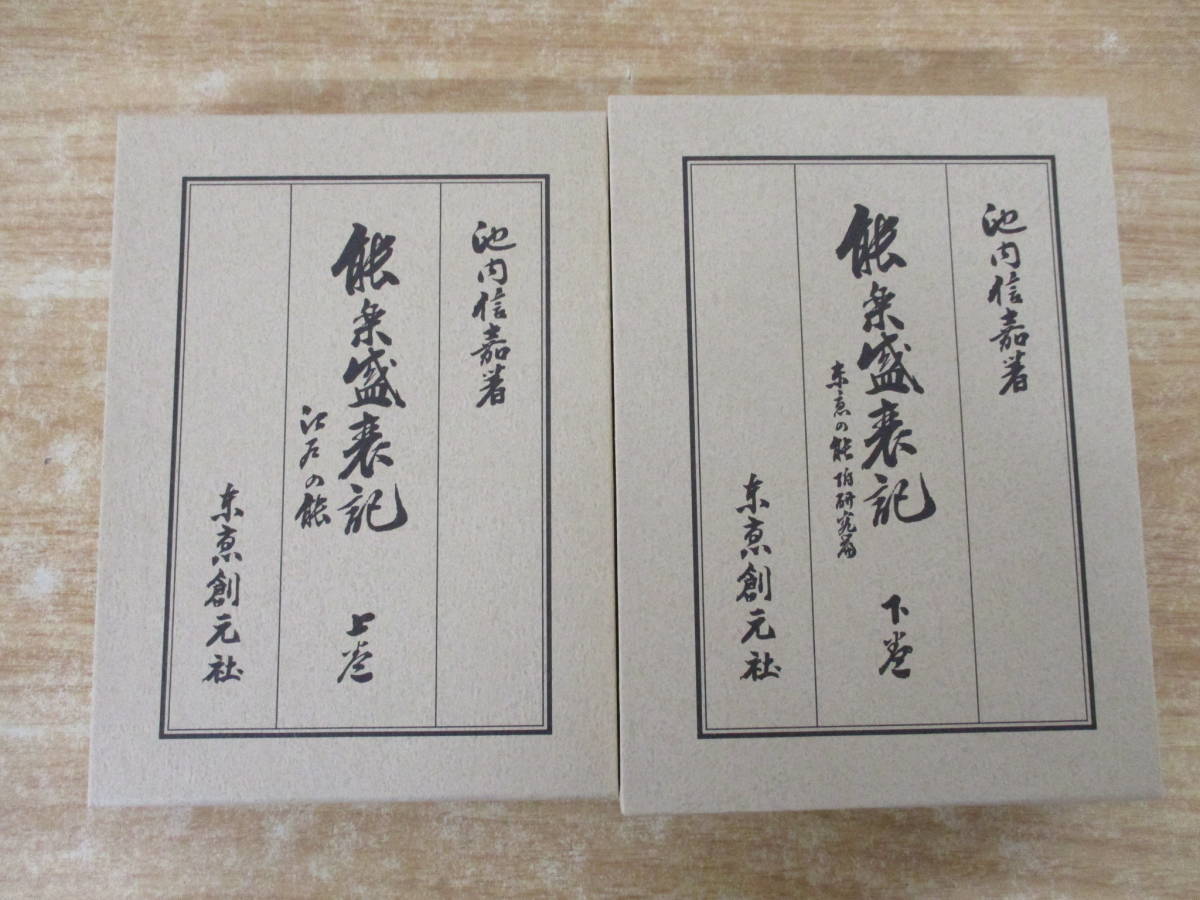 池内信嘉著
能楽盛衰記
江戸の能
上巻
东京創元社
池内信嘉著
能楽盛衰記
东京の能 附研究篇
下巻
东京創元社